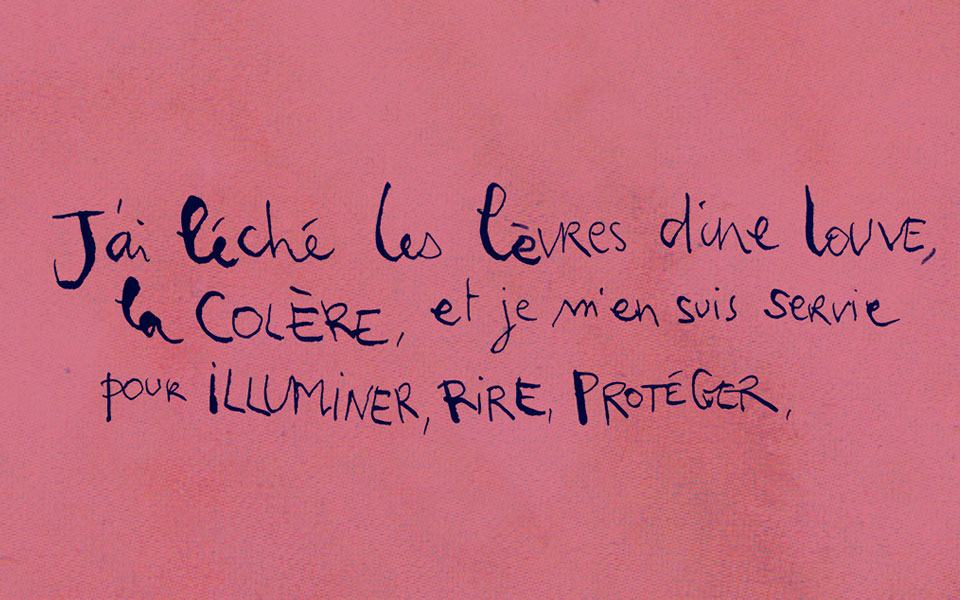 J'ai léché les lèvres d'une louve,
la COLÈRE, et je m'en suis servie
pour iLLUMiNER, RiRE, PROTÉGER,